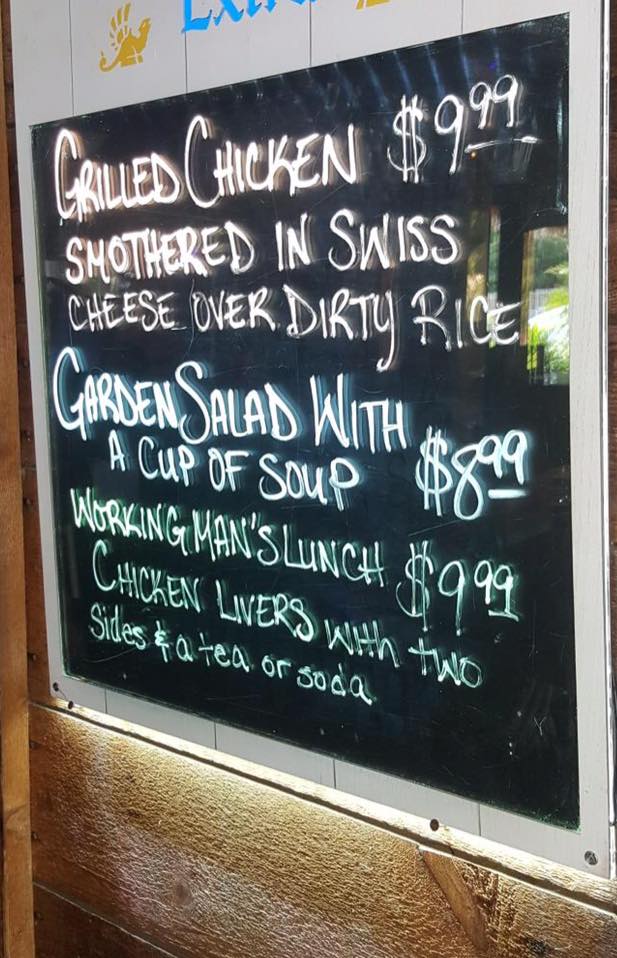 GRILLED CHICKEN $9.99
SMOTHERED IN SWISS
CHEESE OVER DIRTY RICE
GARDEN SALAD WITH
A CUP OF SOUP $8.99
WORKING MAN'S LUNCH $9.99
CHICKEN LIVERS with two
sides & a tea or soda